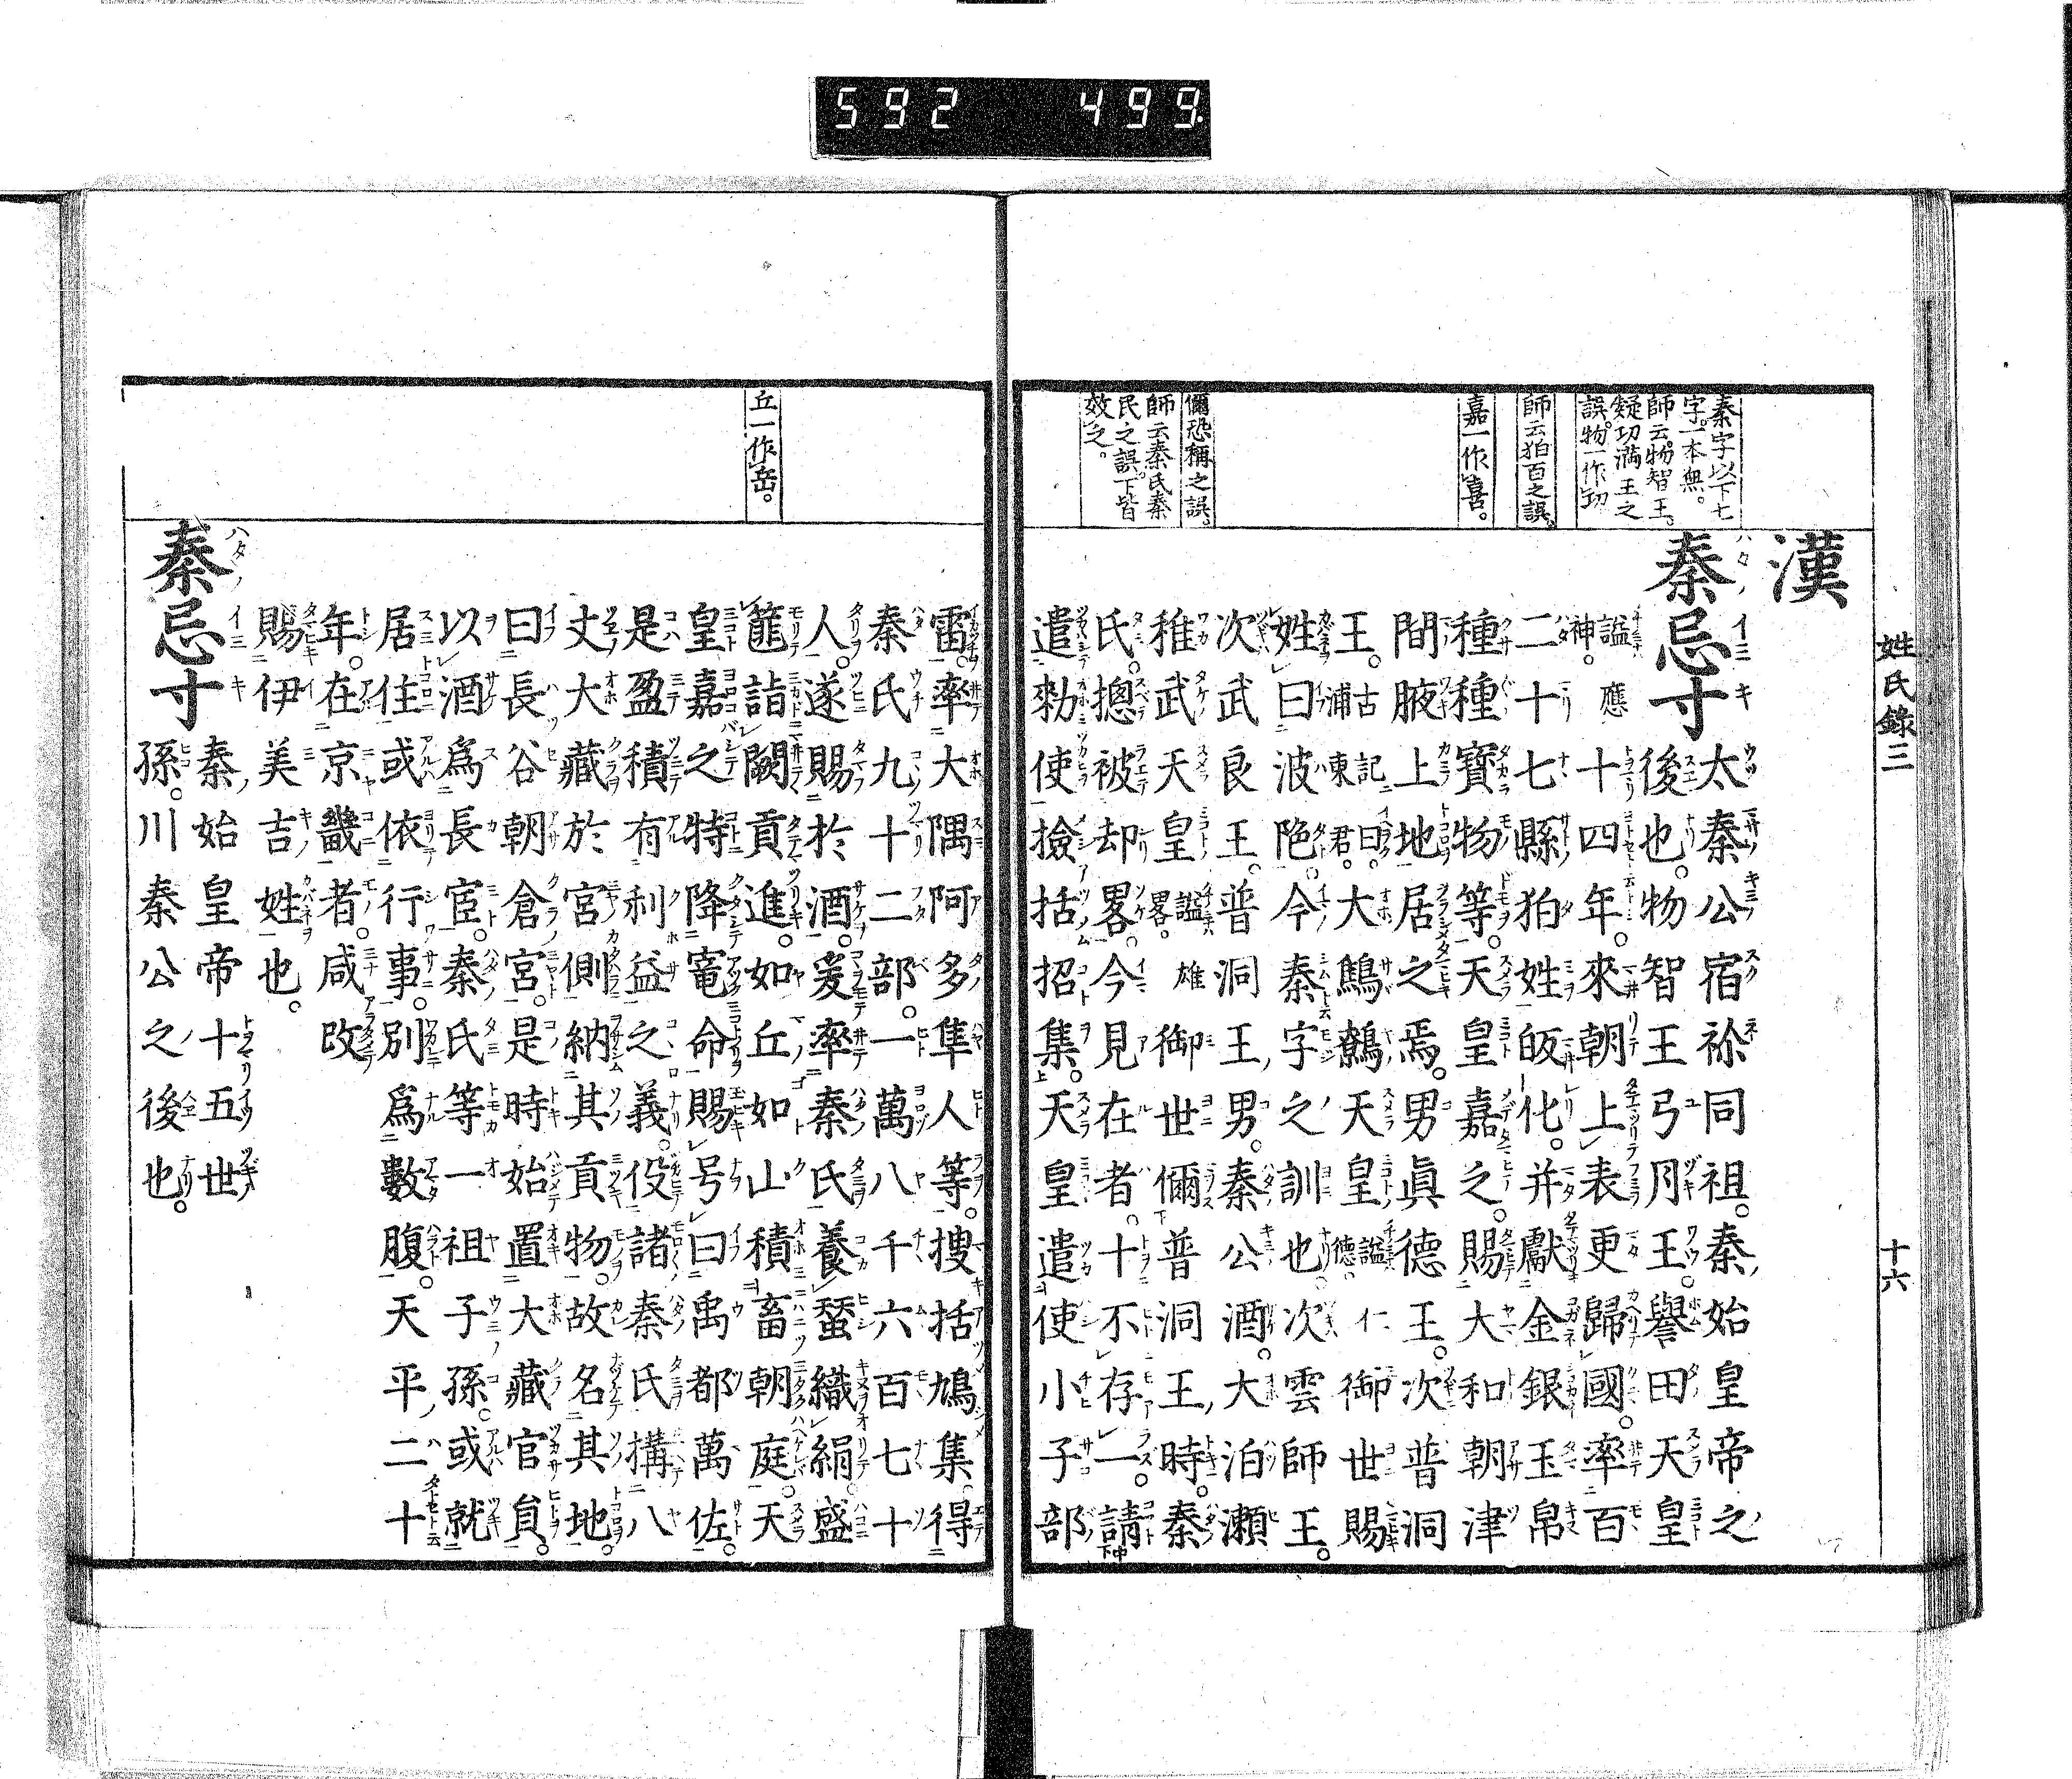 592 499.
姓氏錄三 十六
秦字以下七
字一本無。
師云物智王。
疑功満王之
誤。物一作功
師云狛百之誤。
嘉一作喜。
儞恐稱之誤。
師云秦氏秦
民之誤。下皆
效之。
漢
秦忌寸
太秦公宿祢同祖。秦始皇帝之
後也。物智王弓月王。譽田天皇
諡應
神。十四年。來朝上表更歸國。率百
二十七縣狛姓皈化。并獻金銀玉帛
種種寶物等。天皇嘉之。賜大和朝津
間腋上地居之焉。男眞德王。次普洞
王。古記曰。
浦東君。大鷦鷯天皇諡仁
德。御世賜
姓曰波陁。今秦字之訓也。次雲師王。
次武良王。普洞王男。秦公酒。大泊瀬
稚武天皇諡雄
畧。御世儞普洞王時。秦
氏。摠被却畧。今見在者。十不存一。請
遣勅使撿括招集。天皇遣使小子部
丘一作岳。
雷。率大隅阿多隼人等。捜括鳩集。得
秦氏九十二部。一萬八千六百七十
人。遂賜於酒。爰率秦氏養蠶織絹盛
篚詣闕貢進。如丘如山積畜朝庭。天
皇嘉之特降竉命賜号曰禹都萬佐。
是盈積有利益之義。役諸秦氏搆八
丈大藏於宮側納其貢物。故名其地。
曰長谷朝倉宮。是時始置大藏官負。
以酒爲長宦。秦氏等一祖子孫。或就
居住或依行事。別爲數腹。天平二十
年。在京畿者。咸改
賜伊美吉姓也。
秦忌寸
秦始皇帝十五世
孫。川秦公之後也。